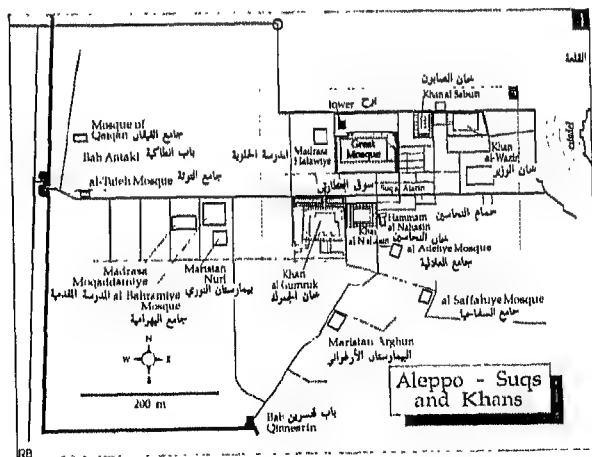 القلعة
خان الصابون
Khan al Sabun
برج
Tower
Mosque of
Qaiqan جامع القيقان
Bab Antaki باب انطاكية
al-Tuteh Mosque جامع التوتة
المدرسة الحلوية
Madrasa
Halawiye
Great
Mosque
Khan
al-Wazir
خان الوزير
citadel
سوق العطارين
Suq al-Atarin
Hammam
al Nahasin
حمام النحاسين
Khan
al Nahasin
خان النحاسين
al Adeliye Mosque
جامع العادلية
Madrasa
Moqaddamiye
المدرسة المقدمية
al Bahramiye
Mosque
جامع البهرامية
Maristan
Nuri
بيمارستان النوري
Khan
al Gumruk
خان الجمرك
al Saffahiye Mosque
جامع السفاحية
Maristan Arghun
البيمارستان الأرغواني
N
W E
S
200 m
Aleppo - Suqs
and Khans
Bab باب قنسرين
Qinnesrin
RB